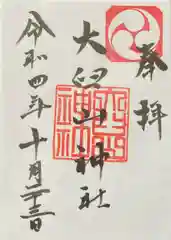 奉拝
大臼山神社
令和四年十月二十三日